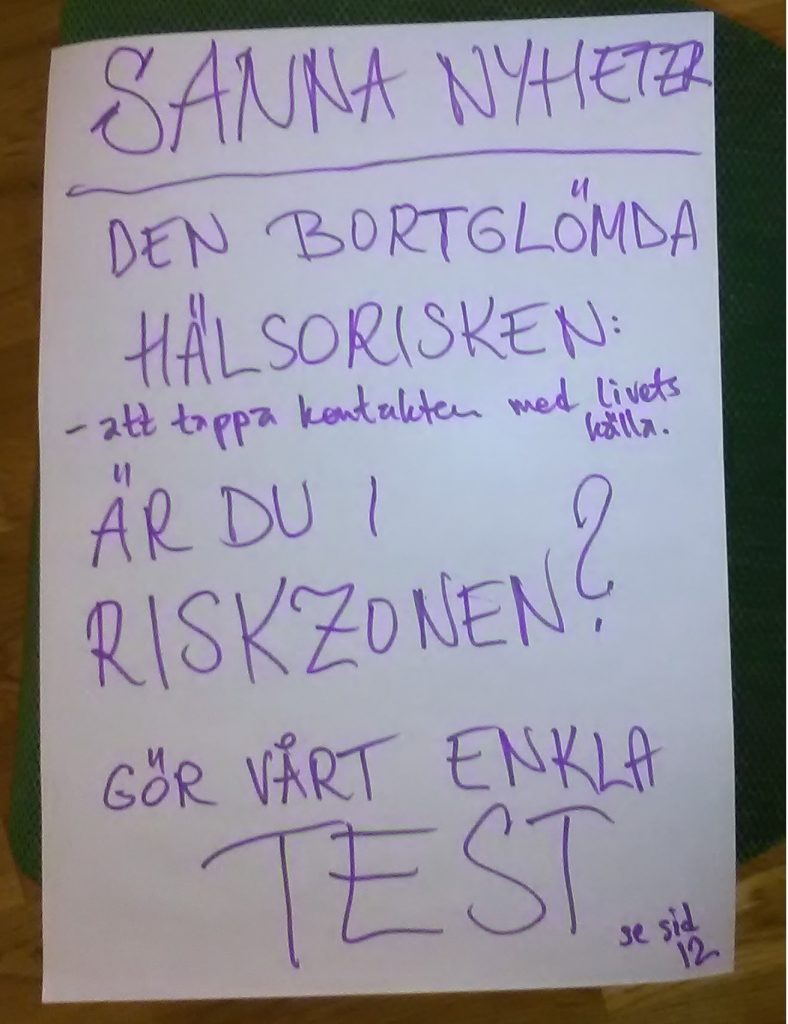 SANNA NYHETER
DEN BORTGLÖMDA
HÄLSORISKEN:
- att tappa kontakten med livets
källa.
ÄR DU I
RISKZONEN?
GÖR VÅRT ENKLA
TEST
se sid
12